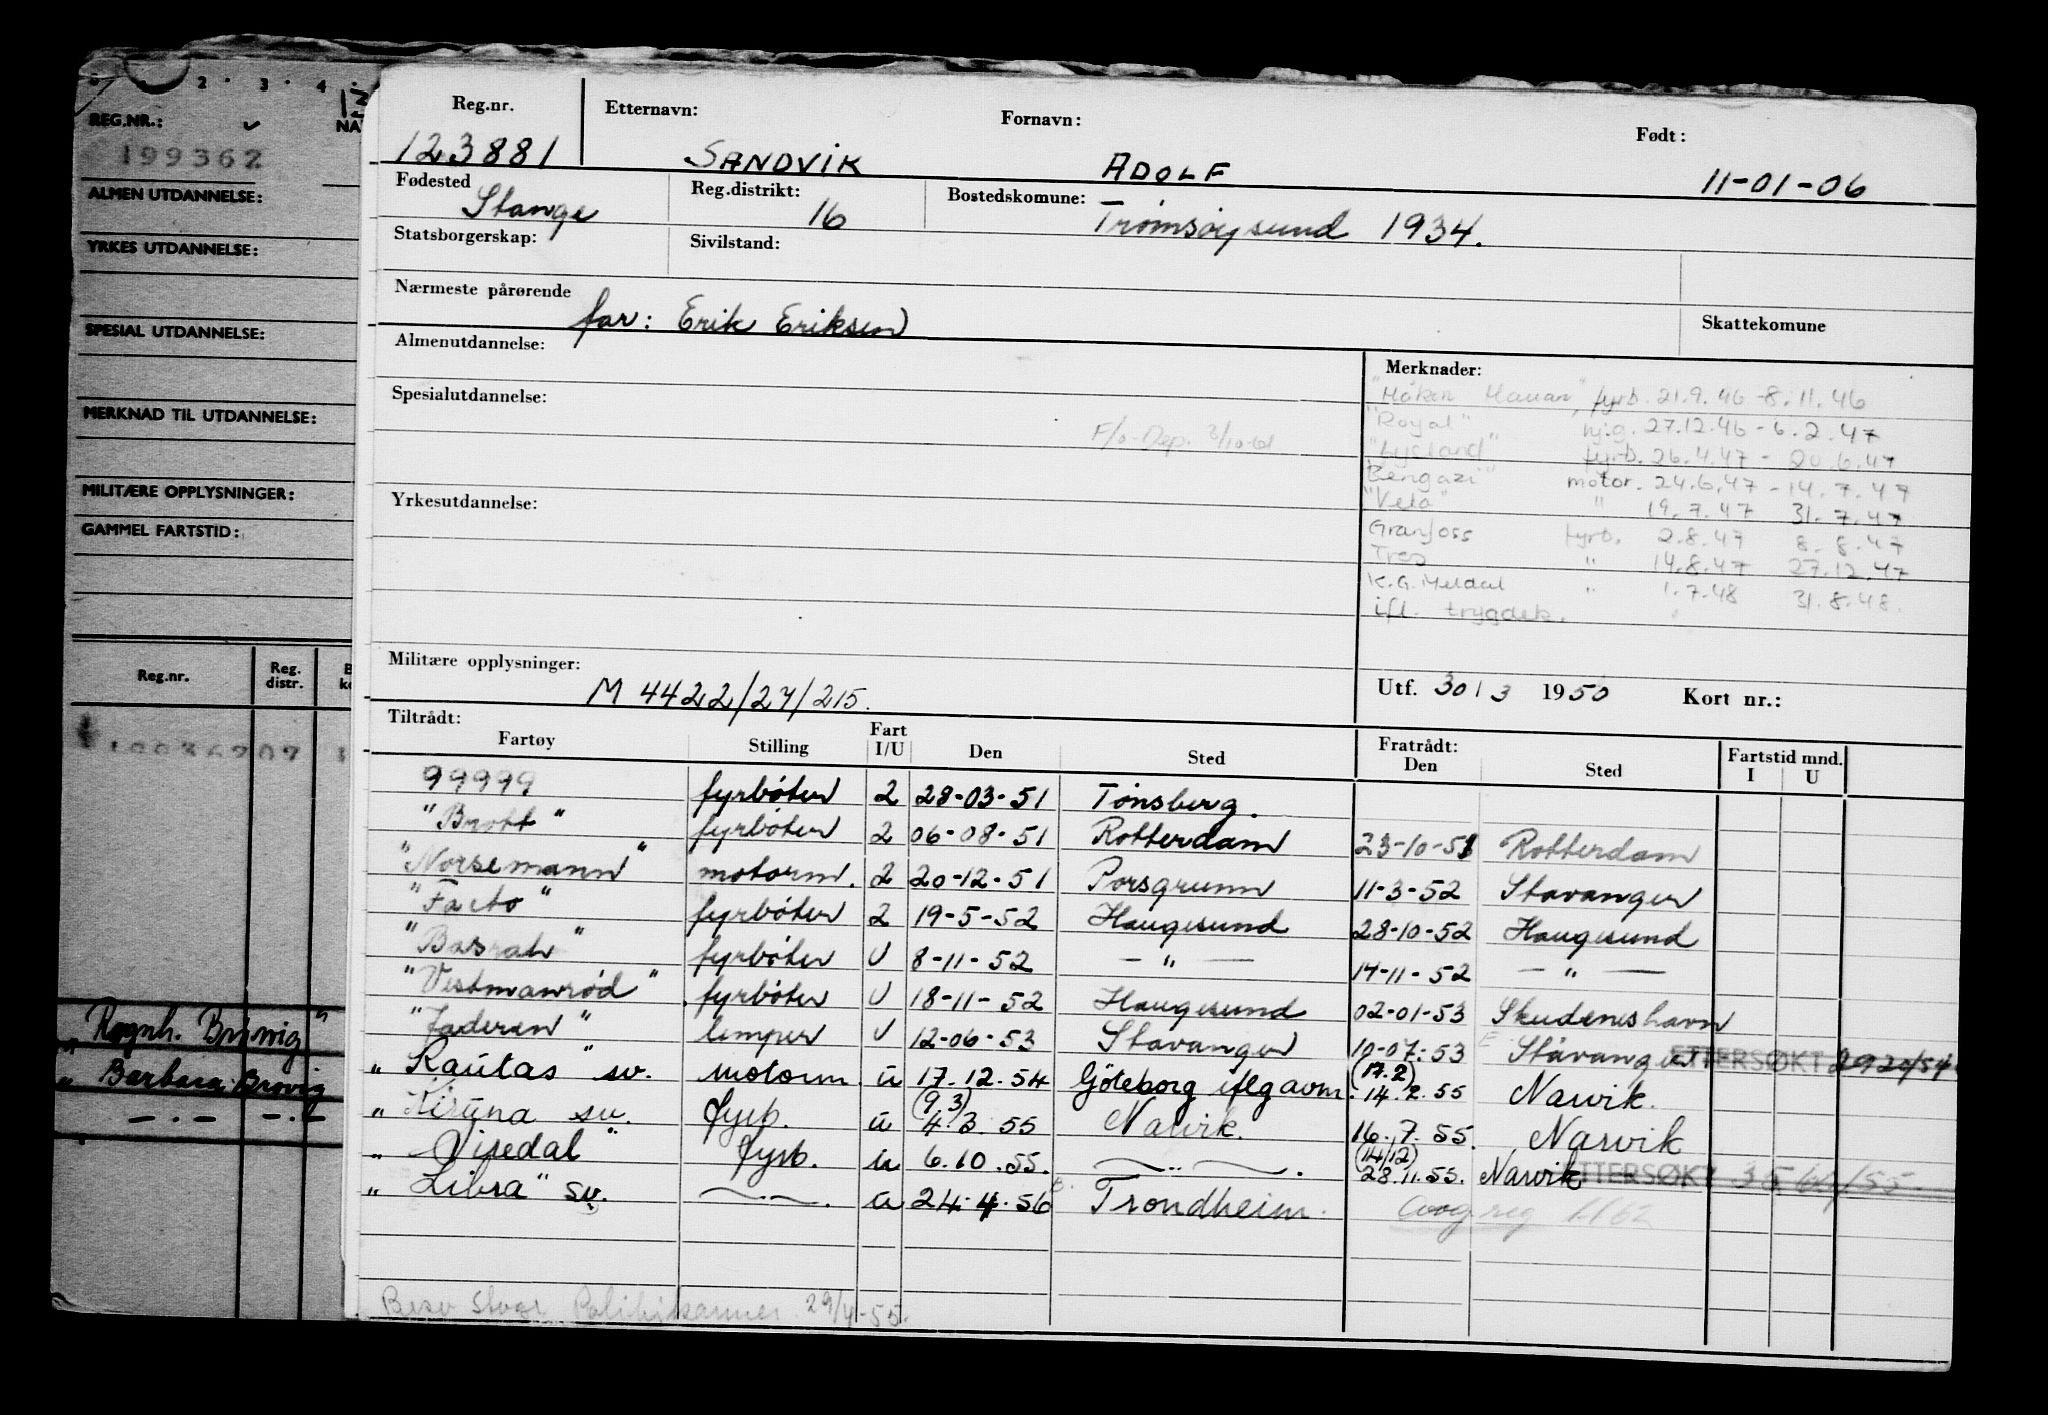 2 · 3 · 4 ·
REG.NR.:
199362
ALMEN UTDANNELSE:
YRKES UTDANNELSE:
SPESIAL UTDANNELSE:
MERKNAD TIL UTDANNELSE:
MILITÆRE OPPLYSNINGER:
GAMMEL FARTSTID:
Reg.nr. Reg. distr.
Ragnh. Brøvig"
" Barbara Brovig
— . — — . —
Reg.nr. Etternavn: Fornavn: Født:
123881 SANDVIK ADOLF 11-01-06
Fødested Reg.distrikt: Bostedskomune:
Stange 16 Tromsøysund 1934.
Statsborgerskap: Sivilstand:
Nærmeste pårørende
far: Erik Eriksen Skattekomune
Almenutdannelse: Merknader:
"Håkon Hauan", fyrb. 21.9.46 - 8.11.46
Spesialutdannelse:
"Royal" 27.12.46 - 6.2.47
F/o-Dep. 3/10-61
"Lysland" fyrb. 26.4.47 - 20.6.47
Bengazi" motor. 24.6.47 - 14.7.47
Yrkesutdannelse:
"Vela" " 19.7.47 31.7.47
Granfoss fyrb. 2.8.47 8.8.47
Tres " 14.8.47 27.12.47
K.G. Meldal " 1.7.48 31.8.48.
ifl. trygdek.
Militære opplysninger:
M 4422/27/215.
Utf. 30/3 1950 Kort nr.:
Tiltrådt: Fratrådt: Fartstid mnd.
Fartøy Stilling Fart I/U Den Sted Den Sted I U
99999 fyrbøter 2 28-03-51 Tønsberg.
"Brott" fyrbøter 2 06-08-51 Rotterdam 23-10-51 Rotterdam
"Norsemann" motorm. 2 20-12-51 Porsgrunn 11-3-52 Stavanger
"Facto" fyrbøter 2 19-5-52 Haugesund 28-10-52 Haugesund
"Basrah" fyrbøter U 8-11-52 — " — 14-11-52 — " —
"Vestmanrød" fyrbøter U 18-11-52 Haugesund 02-01-53 Skudeneshavn
"Jaderen" lemper U 12-06-53 Stavanger 10-07-53 Stavanger ETTERSØKT
" Rautas" sv. motorm. u 17.12.54 Göteborg iflg avm. (17.2) 14.2.55 Narvik.
" Kiruna sv. fyrb. u (9.3) 4.3.55 Narvik. 16.7.55. Narvik
" Visedal" fyrb. u 6.10.55. — " — . (14/12) 28.11.55. Narvik ETTERSØKT
" Libra" sv. — " — u 24.4.56 Trondheim.
29/4-55.